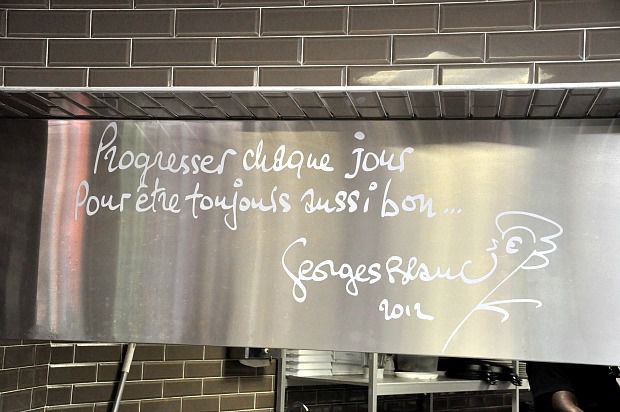 Progresser chaque jour
Pour être toujours aussi bon...
Georges Blanc
2012